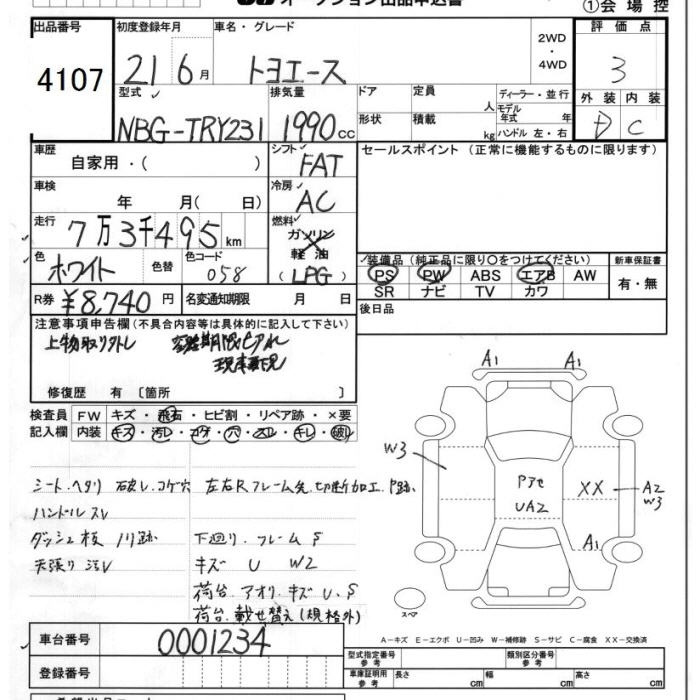 オークション出品申込書
①会場控
出品番号 初度登録年月 車名・グレード 評価点
4107 21 6月 トヨエース 2WD ・ 4WD 3
型式 排気量 ドア 定員 人 ディーラー・並行 外装 内装
NBG-TRY231 1990cc 形状 積載 kg モデル年式 年 ハンドル 左・右 D C
車歴 シフト セールスポイント (正常に機能するものに限ります)
自家用・( ) FAT
車検 冷房
年 月( 日) AC
走行 燃料
7万3千495km ガソリン
色 色替 色コード 軽油
ホワイト 058 (LPG)
装備品 (純正品に限り○をつけてください) 新車保証書
PS PW ABS エアB AW 有・無
SR ナビ TV カワ
R券 ¥8,740円 名変通知期限 月 日
後日品
注意事項申告欄(不具合内容等は具体的に記入して下さい)
上物取り外し
修復歴 有 〔箇所 〕
検査員 FW キズ・飛石・ヒビ割・リペア跡・×要
記入欄 内装 キズ・汚レ・コゲ・穴・スレ・キレ・破レ
A1 A1
W3
シート.ヘタリ 破レ.コゲ穴 左右Rフレーム先.切断加工.P跡
Pアセ XX A2
UA2 W3
ハンドルスレ
ダッシュ板 川跡 下廻り.フレーム S
A1
天張り 汚レ キズ U W2
荷台.アオリ.キズ U.S
荷台.載せ替え(規格外)
スペア
車台番号 0001234
A-キズ E-エクボ U-凹み W-補修跡 S-サビ C-腐食 XX-交換済
型式指定番号 参考 類別区分番号 参考
登録番号 車庫証明用 参考 長さ cm 幅 cm 高さ cm